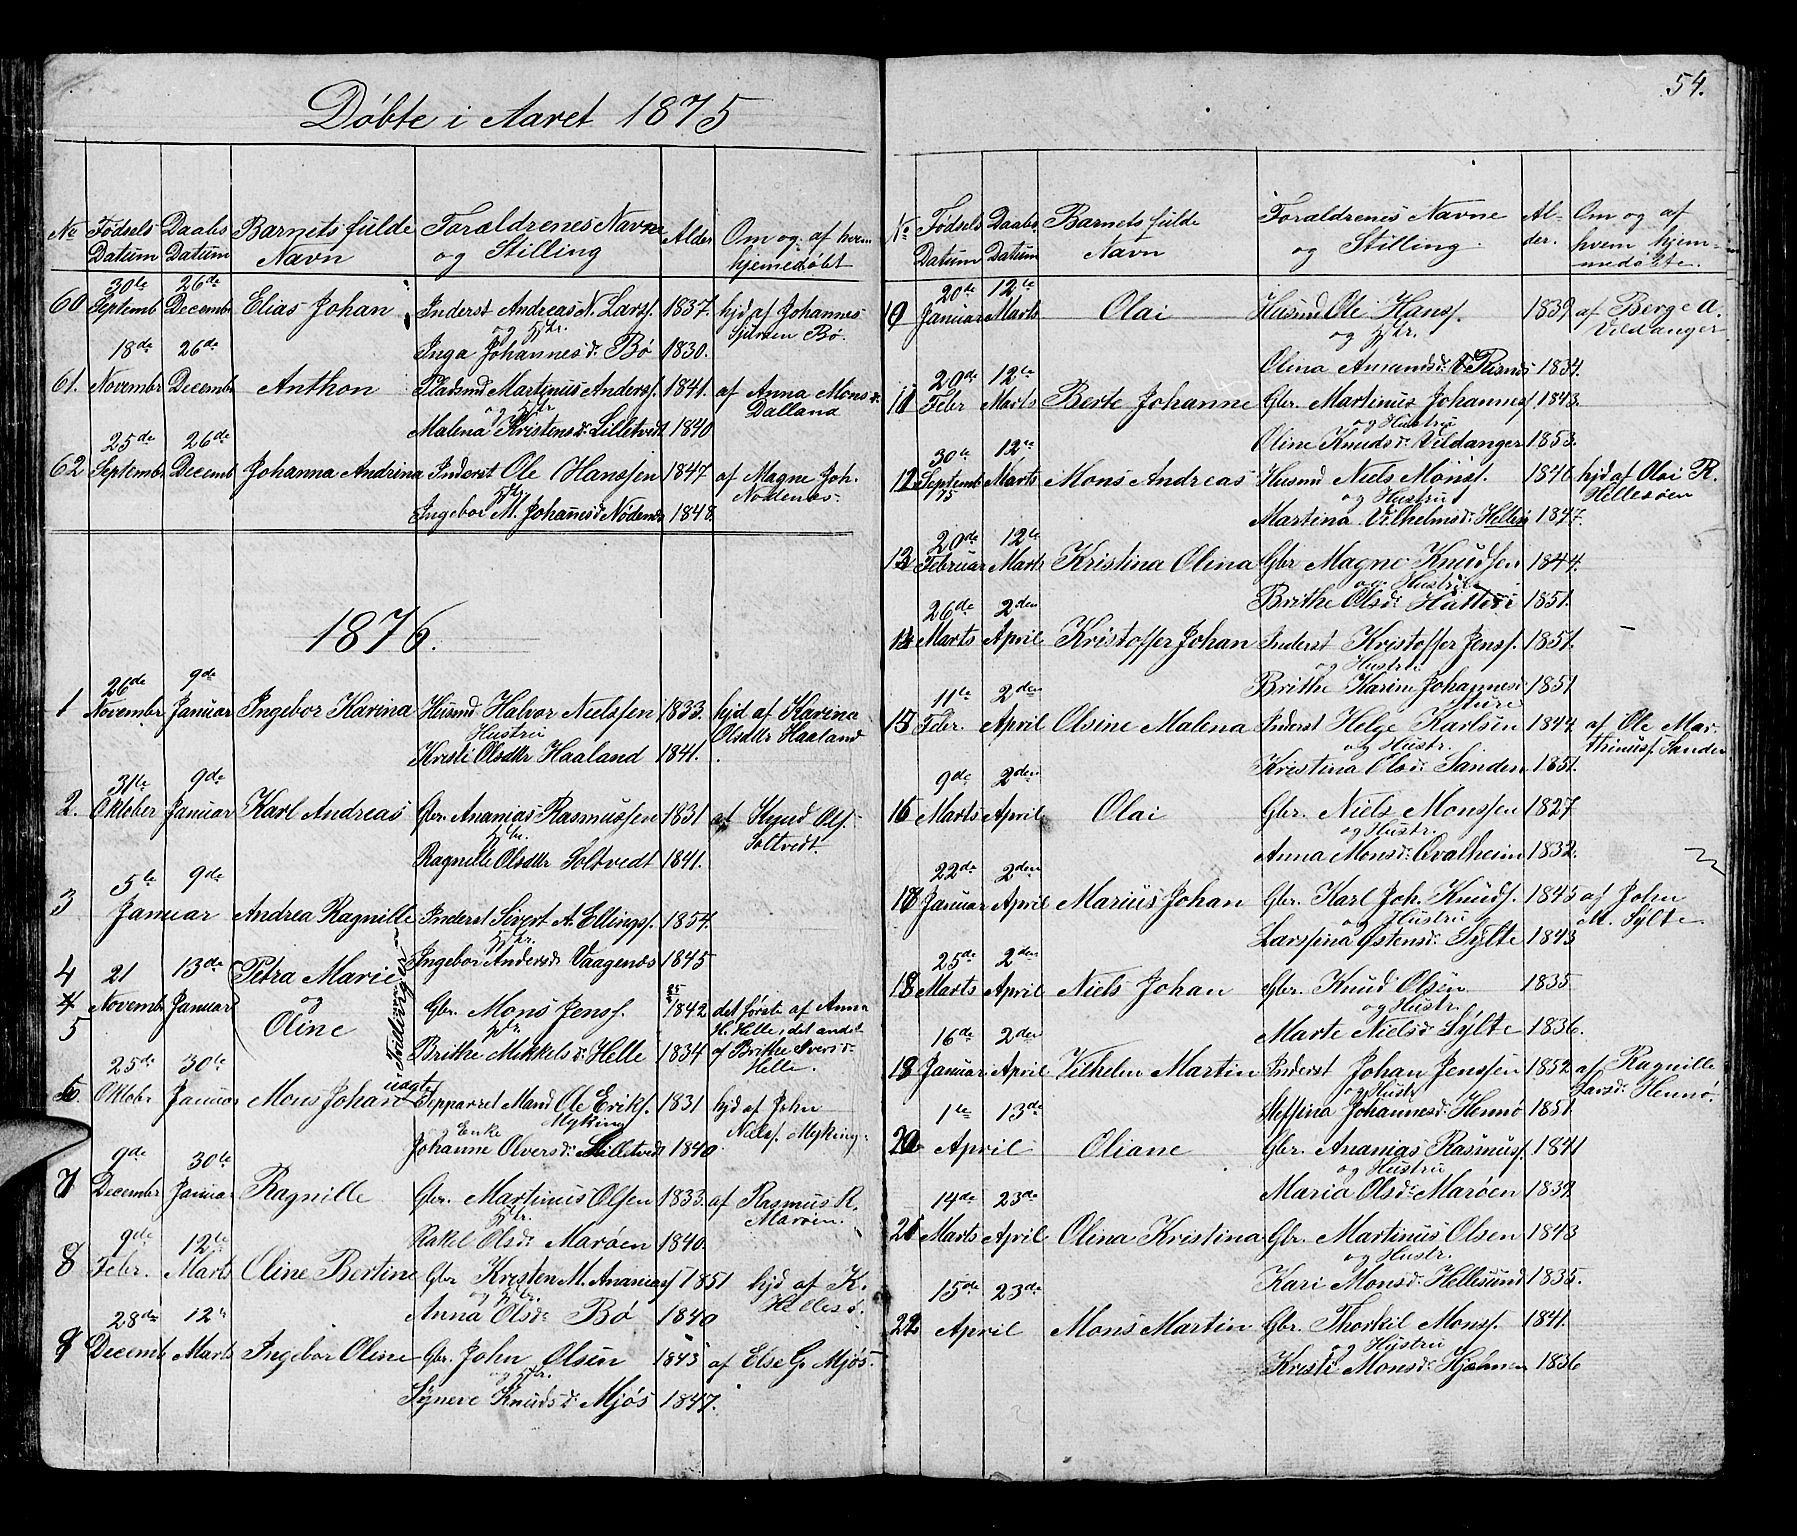 Døbte i Aaret 1875
No Fødsels Datum Daabs Datum Barnets fulde Navn Forældrenes Navne og Stilling Alder Om og af hvem hjemedøbt
30te 26de
60 Septemb Decembr Elias Johan Inderst Andreas N. Larss. 1837. hjd af Johannes
og Hstr. Sjursen Bø.
Inga Johannesd: Bø 1830.
18de 26de
61. Novembr Decembr Anthon Pladsmd Martinus Anderss. 1841. af Anna Monsd:
og Hstr Dalland
Malena Kristensd: Lilletvedt 1840
25de 26de
62 Septembr Decemb Johanna Andrina Inderst Ole Hanssen 1847 af Magne Joh.
Hstr Nødenæs
Ingebor M. Johansd Nødenæs 1848.
1876.
26de 9de
1 Novembr Januar Ingebor Karina Husmd Halvor Nielssen 1833. hjd af Karina
Hustru Olsdttr Haaland
Kristi Olsdttr Haaland 1841.
31te 9de
2. Oktober Januar Karl Andreas Gbr. Ananias Rasmussen 1831 af Knud Ols.
Hstr. Soltvedt.
Ragnille Olsdttr Soltvedt 1841.
5te 9de
3 Januar Andrea Ragnille Inderst Sivert A. Ellingss. 1854.
Hstr.
Ingebor Andersd: Vaagenæs 1845
4 21 13de Petra Marie
4 Novemb Januar og Gbr. Mons Jenss. 1842 det første af Anna
5 Oline Hstr. H. Helle, det andet
Tvillinger Brithe Mikkelsd: Helle 1834 af Brithe Sversd:
Helle.
25de 30te
6 Oktobr Januar Mons Johan uagte Sepparret Mand Ole Eriks. 1831 hjd af John
Myking Niels. Myking
og Enke
Johanne Olversd: Lilletvedt 1840.
9de 30te
7 Decembr Januar Ragnille Gbr. Martinus Olsen 1833. af Rasmus R.
Hstr. Marøen.
Rakel Olsd: Marøen 1840.
9de 12te
8 Febr. Marts Oline Bertine Gbr Kristen M. Ananias 1851 hjd af K.
og Hstr.
Anna Olsd: Bø 1840
28de 12te
9 Decemb Marts Ingebor Oline Gbr. John Olsen 1843 af Else G. Mjøs.
og Hstr.
Syneve Knudsd: Mjøs 1847.
54.
No Fødsels Datum Daabs Datum Barnets fulde Navn Forældrenes Navne og Stilling Alder. Om og af hvem hjemmedøbte.
20de 12te
10 Januar Marts Olai Husmd Ole Hanss. 1839 af Berge A.
og Hstr. Vildanger
Olina Amundsd: Risnes 1834.
20de 12te
11 Febr Marts Berte Johanne Gbr. Martinus Johannes 1843.
og Hustru
Oline Knudsd: Vildanger 1853.
30te 12te
12 Septemb 75 Marts Mons Andreas Husmd Niels Monss. 1846 hjd af Olai R.
og Hustru Hellesøen
Martina Vilhelmsd: Hellesø 1847.
20de 12te
13 Februar Marts Kristina Olina Gbr Magne Knudsen 1844.
og Hustru
Brithe Olsd: Hatlesø 1851.
26de 2den
14 Marts April Kristoffer Johan Inderst Kristoffer Jenss. 1851.
og Hustru
Brithe Karine Johannesd: 1851
Sture
11te 2den
15 Febr. April Olsine Malena Inderst Helge Karlsen 1844. af Ole Mar-
og Hustr. thinuss. Sanden
Kristina Olsd: Sanden 1851.
9de 2den
16 Marts April Olai Gbr. Niels Monssen 1827
og Hustr.
Anna Monsd: Qvalheim 1832.
22de 2den
18 Januar April Marius Johan Gbr. Karl Joh. Knuds. 1843 af John
og Hustru M. Sylte
Larssina Østensd: Sylte 1843
25de 2den
18 Marts April Niels Johan Gbr. Knud Olsen 1835
og Hustr.
Marte Nielsd: Sylte 1836.
16de 2den
19 Januar April Vilhelm Martin Inderst Johan Jenssen 1852 af Ragnille
og Hustr Larsd: Hennø.
Steffina Johannesd: Hennø 1851.
1te 13de
20 April Oliane Gbr. Ananias Rasmus. 1841
og Hustru
Maria Olsd: Marøen 1839.
14de 23de
21 Marts April Olina Kristina Gbr. Martinus Olsen 1843
og Hustr.
Kari Monsd: Hellesund 1835.
15de 23de
22 April Mons Martin Gbr. Thorkil Monss. 1841.
og Hustru
Kristi Monsd: Hjelmen 1836